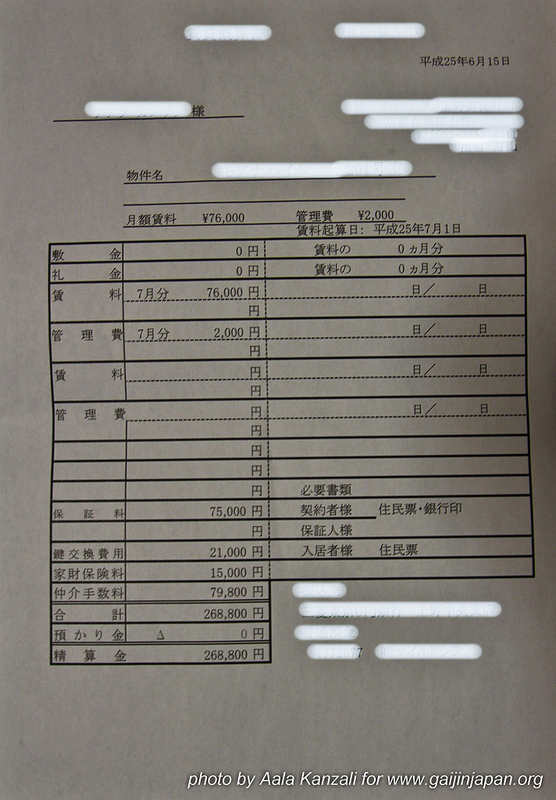 平成25年6月15日
様
物件名
月額賃料 ¥76,000 管理費 ¥2,000
賃料起算日: 平成25年7月1日
敷金 0 円 賃料の 0 ヵ月分
礼金 0 円 賃料の 0 ヵ月分
賃料 7月分 76,000 円 日／ 日
円
管理費 7月分 2,000 円 日／ 日
円
賃料 円 日／ 日
円
管理費 円 日／ 日
円
円
円
円 必要書類
保証料 75,000 円 契約者様 住民票・銀行印
円 保証人様
鍵交換費用 21,000 円 入居者様 住民票
家財保険料 15,000 円
仲介手数料 79,800 円
合計 268,800 円
預かり金 Δ 0 円
精算金 268,800 円
photo by Aala Kanzali for www.gaijinjapan.org